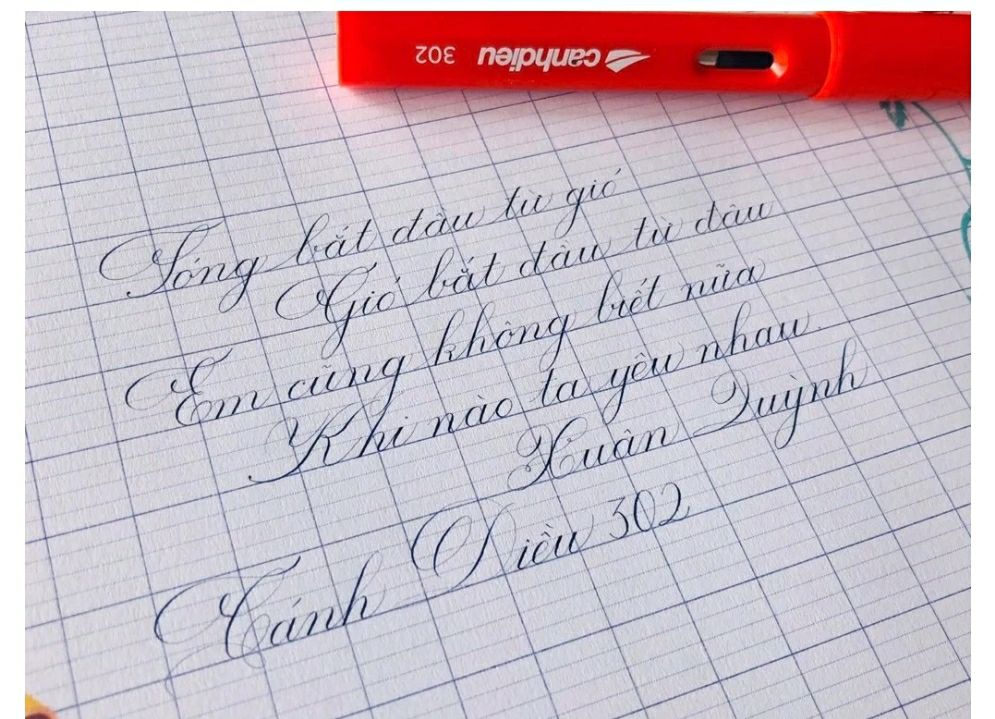 302 canhdieu
Sóng bắt đầu từ gió
Gió bắt đầu từ đâu
Em cũng không biết nữa
Khi nào ta yêu nhau
Xuân Quỳnh
Cánh Diều 302